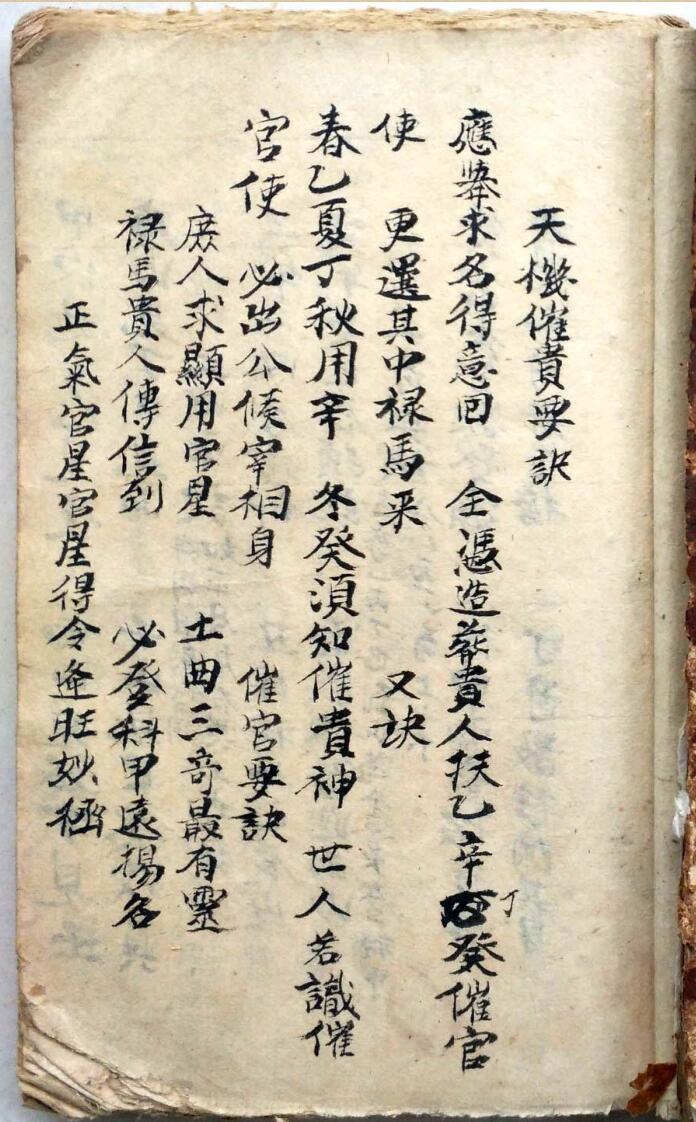 天機催貴要訣
應舉求名得意回 全憑造葬貴人扶乙辛丁癸催官
使 更選其中禄馬来 又訣
春乙夏丁秋用辛 冬癸須知催貴神 世人若識催
官使 必出公候宰相身 催官要訣
庶人求顯用官星 土曲三奇最有靈
禄馬貴人傳信到 必登科甲遠揚名
正氣官星官星得令逢旺妙極